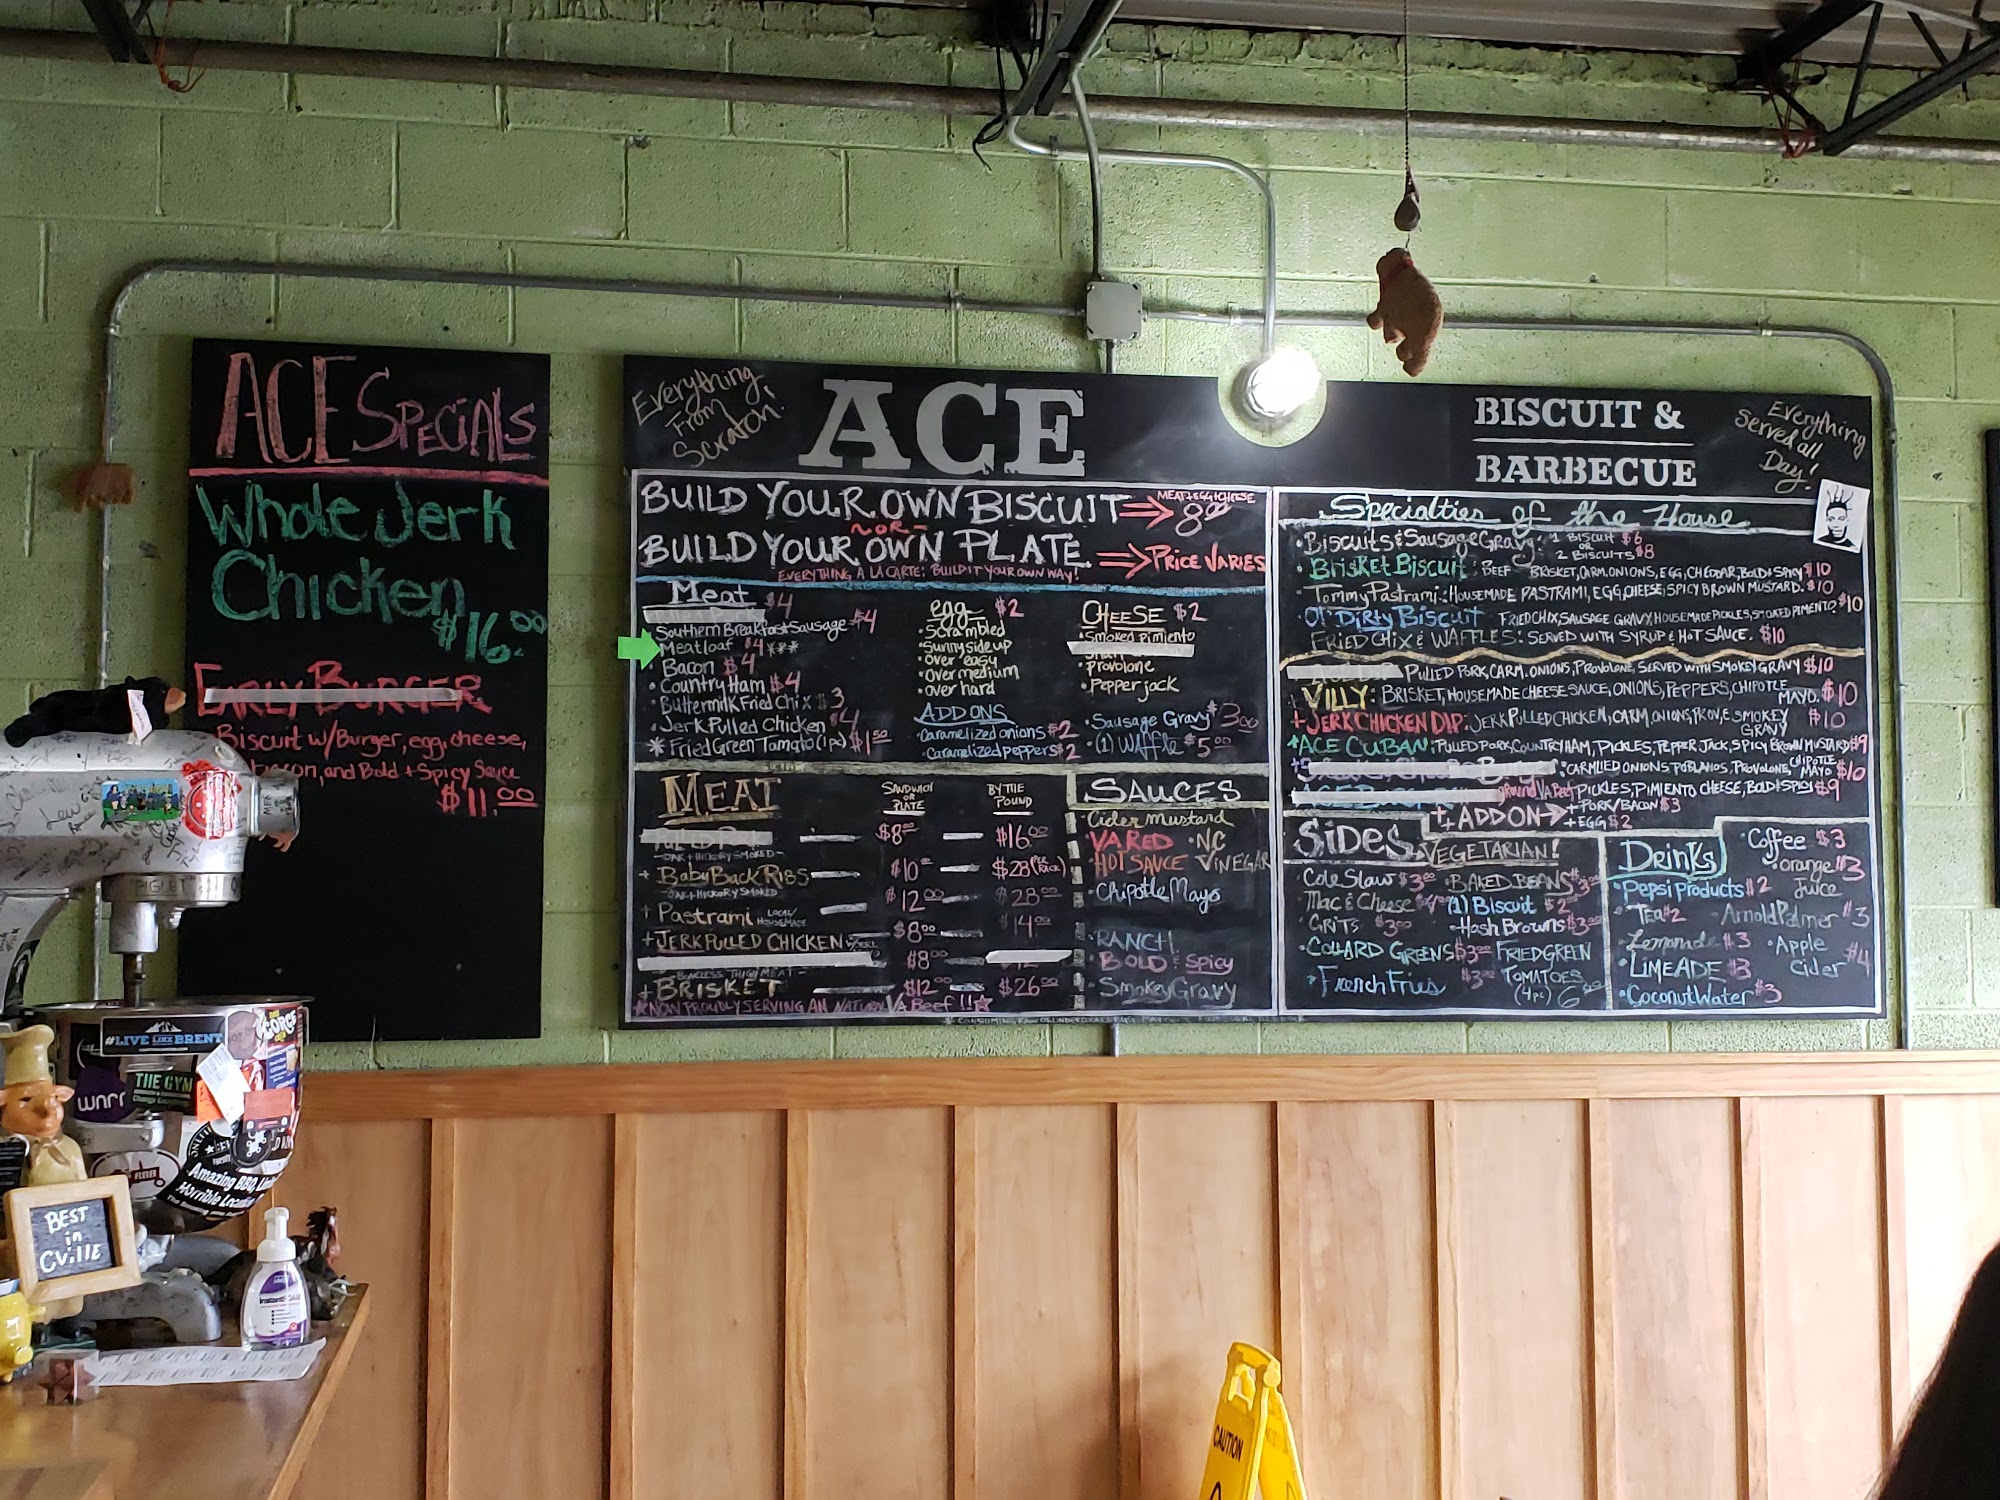 ACE SPECIALS
Whole Jerk
Chicken
$16.00
EARLY BURGER
Biscuit w/Burger, egg, cheese,
bacon, and Bold + Spicy Sauce
$11.00
Everything
From
Scratch!
ACE
BISCUIT &
BARBECUE
Everything
Served all
Day!
BUILD YOUR OWN BISCUIT
MEAT+EGG+CHEESE
8.00
~OR~
BUILD YOUR OWN PLATE
PRICE VARIES
EVERYTHING A LA CARTE; BUILD IT YOUR OWN WAY!
Meat $4
Southern Breakfast Sausage $4
Meatloaf $4 ***
Bacon $4
• Country Ham $4
• Buttermilk Fried Chix $3
• Jerk Pulled Chicken $4
* Fried Green Tomato (1pc) $1.50
egg $2
• Scrambled
• Sunnyside up
• over easy
• over medium
• over hard
CHEESE $2
• Smoked Pimiento
• Provolone
• Pepper jack
ADD ONS
• Caramelized onions $2
• Caramelized peppers $2
• Sausage Gravy $3.00
• (1) Waffle $5.00
MEAT
SANDWICH
OR
PLATE
BY THE
POUND
$8.00 $16.00
-OAK + HICKORY SMOKED-
+ BABY BACK RIBS $10 $28 (PER RACK)
-OAK + HICKORY SMOKED-
+ Pastrami LOCAL/HOUSEMADE $12.00 $28.00
+ JERK PULLED CHICKEN $8.00 $14.00
$8.00
-BONELESS THIGH MEAT-
+ BRISKET $12.00 $26.00
★NOW PROUDLY SERVING ALL NATURAL VA Beef!!★
SAUCES
• Cider Mustard
• VA RED • NC
• HOT SAUCE VINEGAR
• Chipotle Mayo
• RANCH
• BOLD & Spicy
• Smokey Gravy
Specialties of the House
• Biscuits & Sausage Gravy: 1 BISCUIT $6
OR
2 BISCUITS $8
• BRISKET BISCUIT: BEEF BRISKET, CARM. ONIONS, EGG, CHEDDAR, BOLD & SPICY $10
• Tommy Pastrami: HOUSEMADE PASTRAMI, EGG, CHEESE, SPICY BROWN MUSTARD. $10
• Ol' Dirty Biscuit FRIED CHIX, SAUSAGE GRAVY, HOUSEMADE PICKLES, SMOKED PIMENTO $10
• FRIED CHIX & WAFFLES: SERVED WITH SYRUP & HOT SAUCE. $10
PULLED PORK, CARM. ONIONS, PROVOLONE, SERVED WITH SMOKEY GRAVY $10
+ VILLY: BRISKET, HOUSEMADE CHEESE SAUCE, ONIONS, PEPPERS, CHIPOTLE MAYO. $10
+ JERK CHICKEN DIP: JERK PULLED CHICKEN, CARM ONIONS, PROV, & SMOKEY GRAVY $10
ACE CUBAN: PULLED PORK, COUNTRY HAM, PICKLES, PEPPER JACK, SPICY BROWN MUSTARD $9
: CARMLIED ONIONS, POBLANOS, PROVOLONE, CHIPOTLE MAYO $10
GROUND VA Beef PICKLES, PIMIENTO CHEESE, BOLD & SPICY $9
++ ADD ON + PORK/BACON $3
+ EGG $2
SIDES VEGETARIAN!
• Cole Slaw $3.00
• Mac & Cheese $4.00
• GRITS $3.00
• COLLARD GREENS $3.00
• French Fries $3.00
• BAKED BEANS $3.00
(1) BISCUIT $2.00
• Hash Browns $3.00
FRIED GREEN
TOMATOES
(4pc) 6.00
Drinks
• Pepsi Products $2
• Tea $2
• Lemonade $3
• LIMEADE $3
• Coconut Water $3
• Coffee $3
• orange Juice $3
• Arnold Palmer $3
• Apple Cider $4
#LIVE LIKE BRENT
THE GYM
wnrr
PIGLET
Amazing BBQ,
Horrible Location
BEST
in
CVILLE
CAUTION